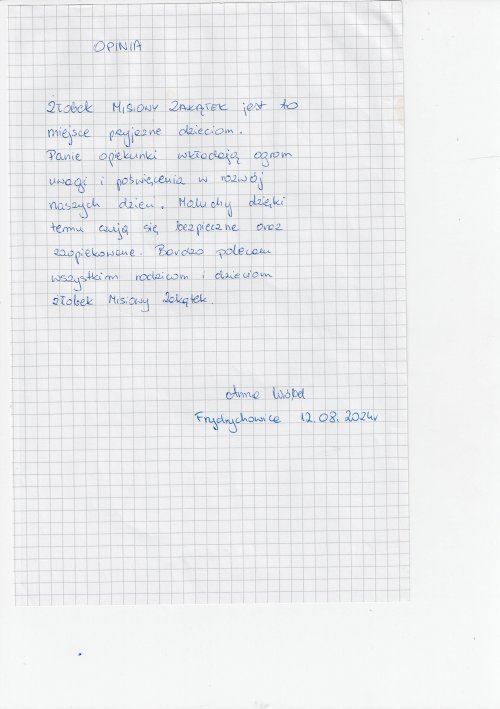 OPINIA
Żłobek MISIOWY ZAKĄTEK jest to
miejsce przyjazne dzieciom.
Panie opiekunki wkładają ogrom
uwagi i poświęcenia w rozwój
naszych dzieci. Maluchy dzięki
temu czują się bezpieczne oraz
zaopiekowane. Bardzo polecam
wszystkim rodzicom i dzieciom
żłobek Misiowy Zakątek.
Anna
Frydrychowice 12.08.2024r